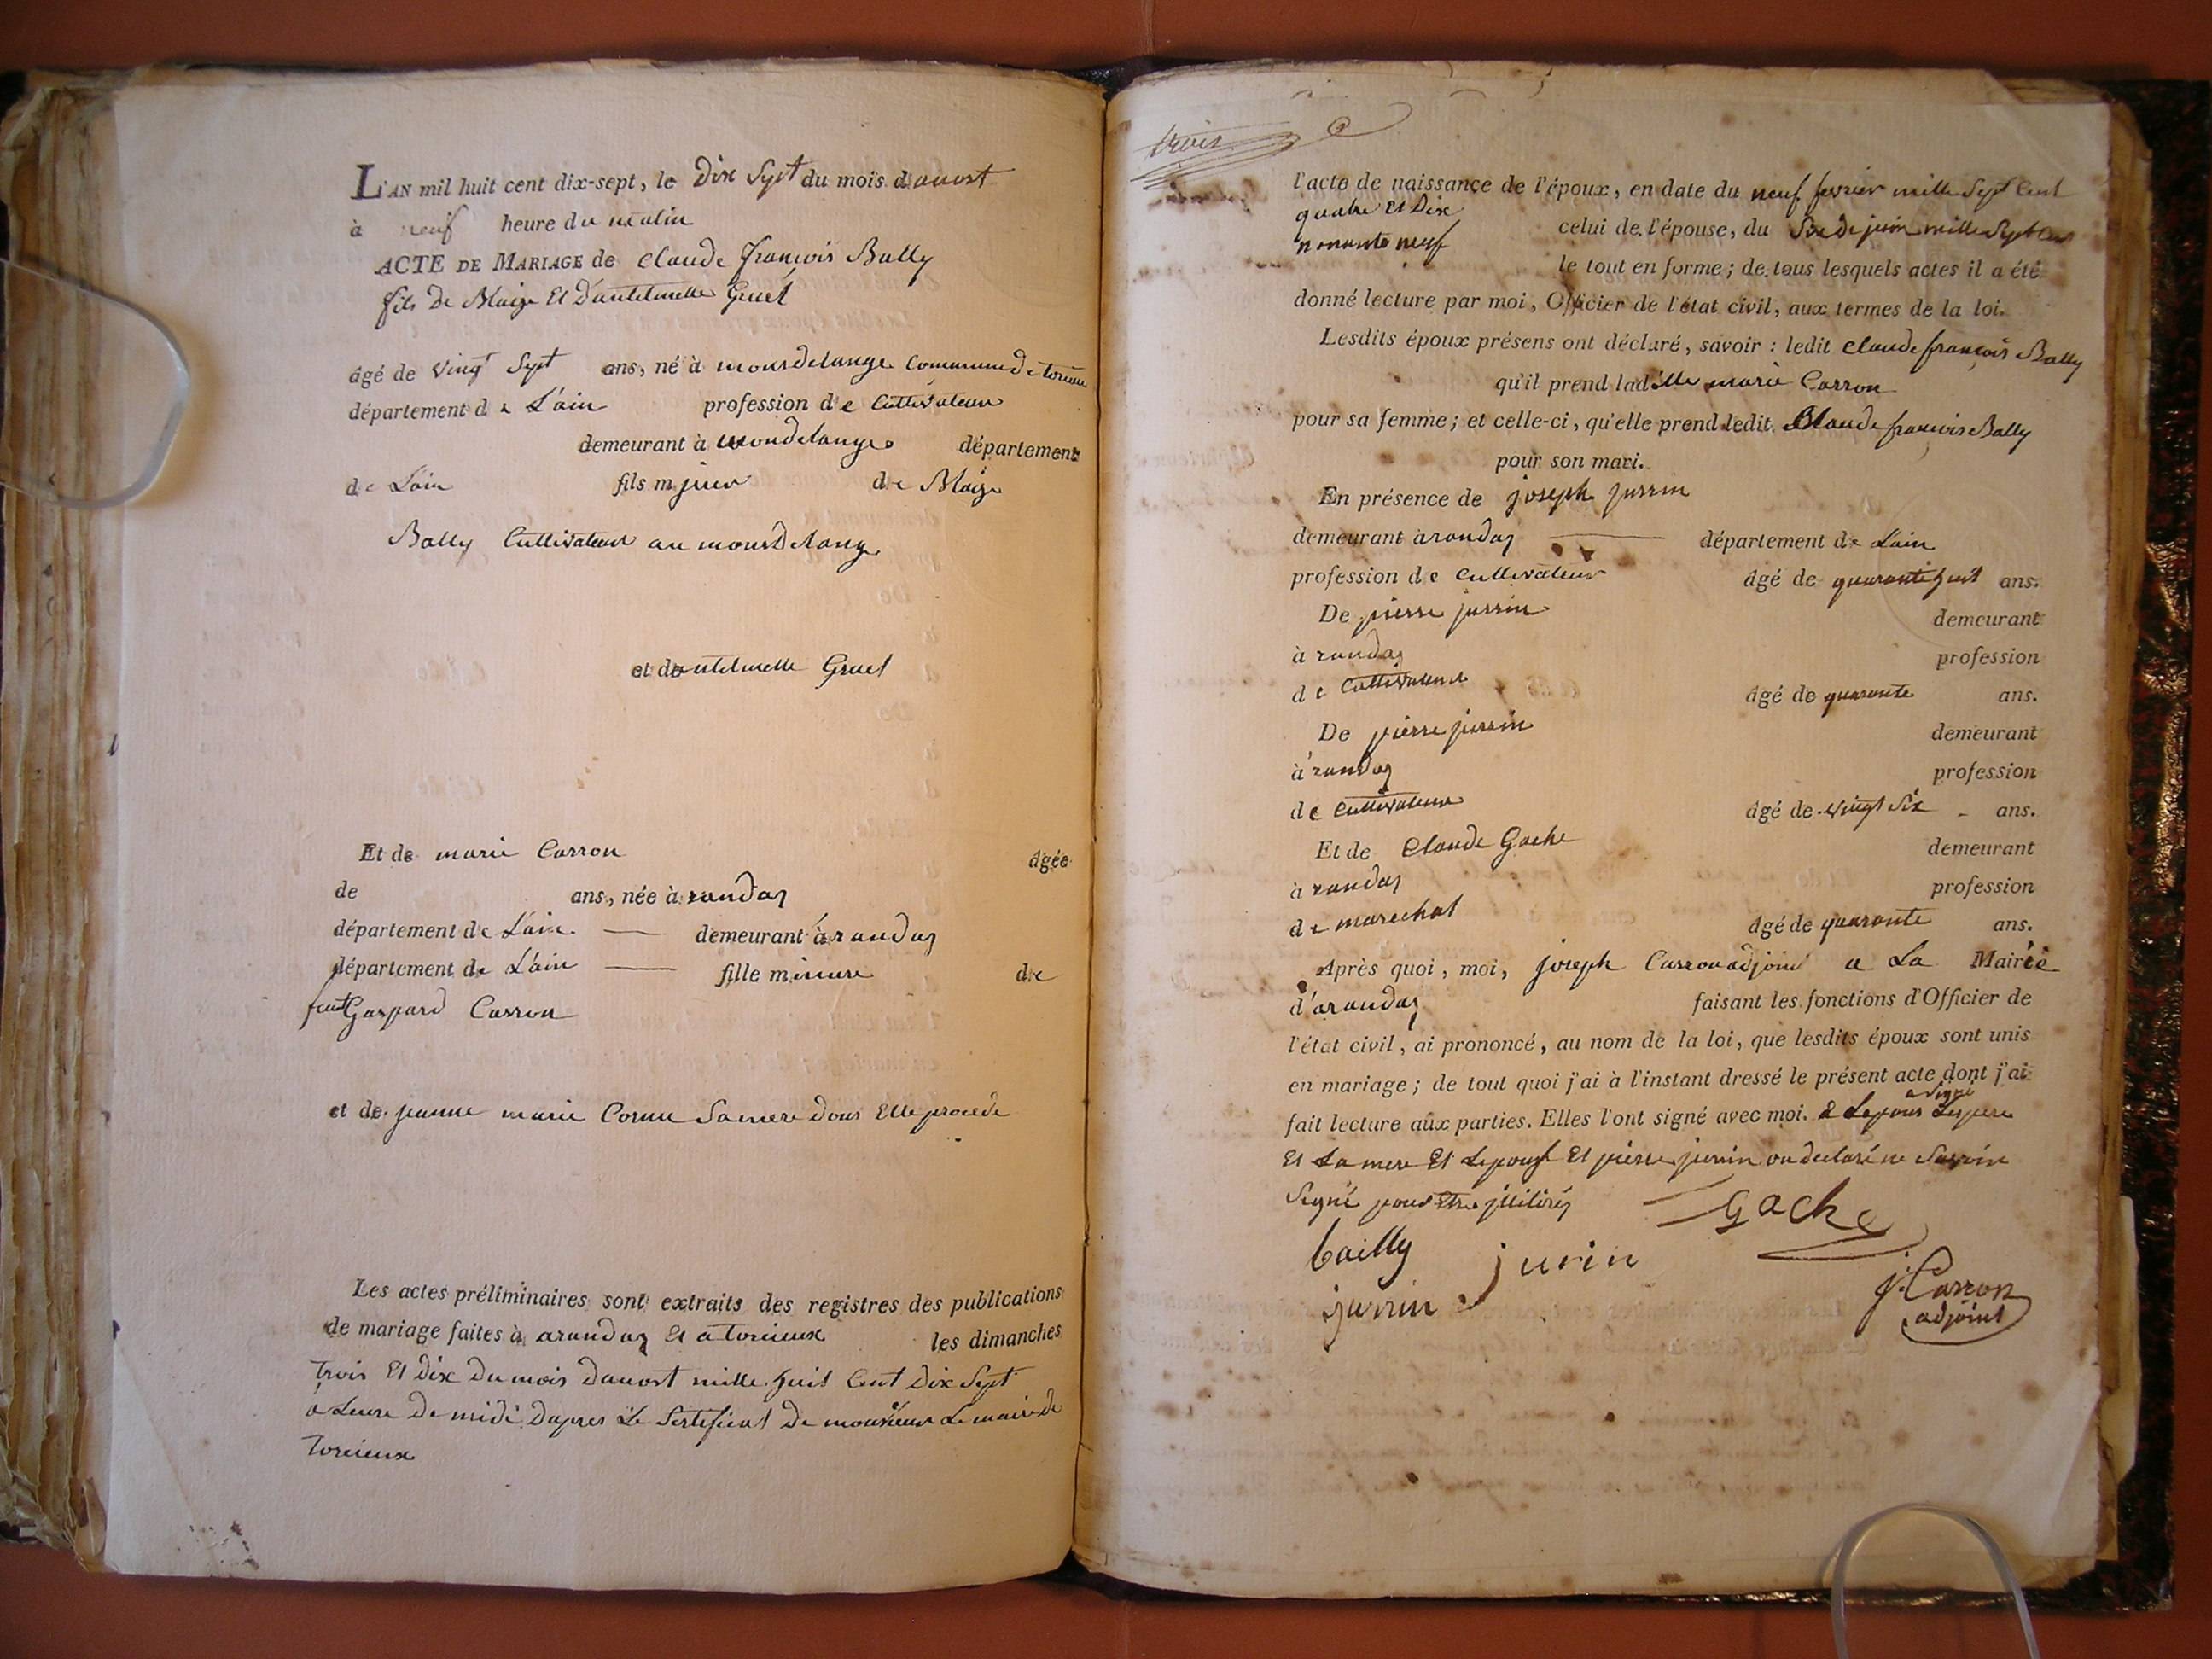 L'AN mil huit cent dix-sept, le Dix Sept du mois d'auost
à neuf heure du matin
ACTE DE MARIAGE de Claude françois Bally
fils de Blaize Et D'antelmette Gruet
âgé de vingt Sept ans, né à montdelange Commune de torcieu
département de L'ain profession de Cultivateur
demeurant à mondelange département
de Lain fils majeur de Blaize
Bally Cultivateur au montdelange
et de antelmette Gruet
Et de marie Carron âgée
de ans, née à randas
département de L'ain — demeurant à randas
département de L'ain — fille mineure de
feut Gaspard Carron
et de jeanne marie Cornu Sa mere Dont Elle procede
Les actes préliminaires sont extraits des registres des publications
de mariage faites à arandas Et a torcieux les dimanches
trois Et Dix Du mois Dauost mille huit Cent Dix Sept
a Leure De midi Dapres Le Sertificat De monsieur Le maire de
torcieux
trois
l'acte de naissance de l'époux, en date du neuf fevrier mille Sept Cent
quatre Et Dix celui de l'épouse, du Six de juin mille Sept Cent
nonante neuf le tout en forme; de tous lesquels actes il a été
donné lecture par moi, Officier de l'état civil, aux termes de la loi.
Lesdits époux présens ont déclaré, savoir : ledit Claude françois Bally
qu'il prend laditte marie Carron
pour sa femme; et celle-ci, qu'elle prend ledit Claude françois Bally
pour son mari.
En présence de joseph jurrin
demeurant à randas — département de L'ain
profession de Cultivateur âgé de quarante huit ans.
De pierre jurrin demeurant
à randas profession
de Cultivateur âgé de quarante ans.
De pierre jurrin demeurant
à randas profession
de Cultivateur âgé de vingt Six ans.
Et de Claude Gache demeurant
à randas profession
de marechal âgé de quarante ans.
Après quoi, moi, joseph Carron adjoint a La Mairie
d'arandas faisant les fonctions d'Officier de
l'état civil, ai prononcé, au nom de la loi, que lesdits époux sont unis
en mariage; de tout quoi j'ai à l'instant dressé le présent acte dont j'ai
fait lecture aux parties. Elles l'ont signé avec moi. Lepoux a signé Lepere
Et La mere Et Lepouse Et pierre jurrin on declaré ne Savoir
Signé pour Etre
Gache
bailly jurin
jurrin
j. Carron
adjoint